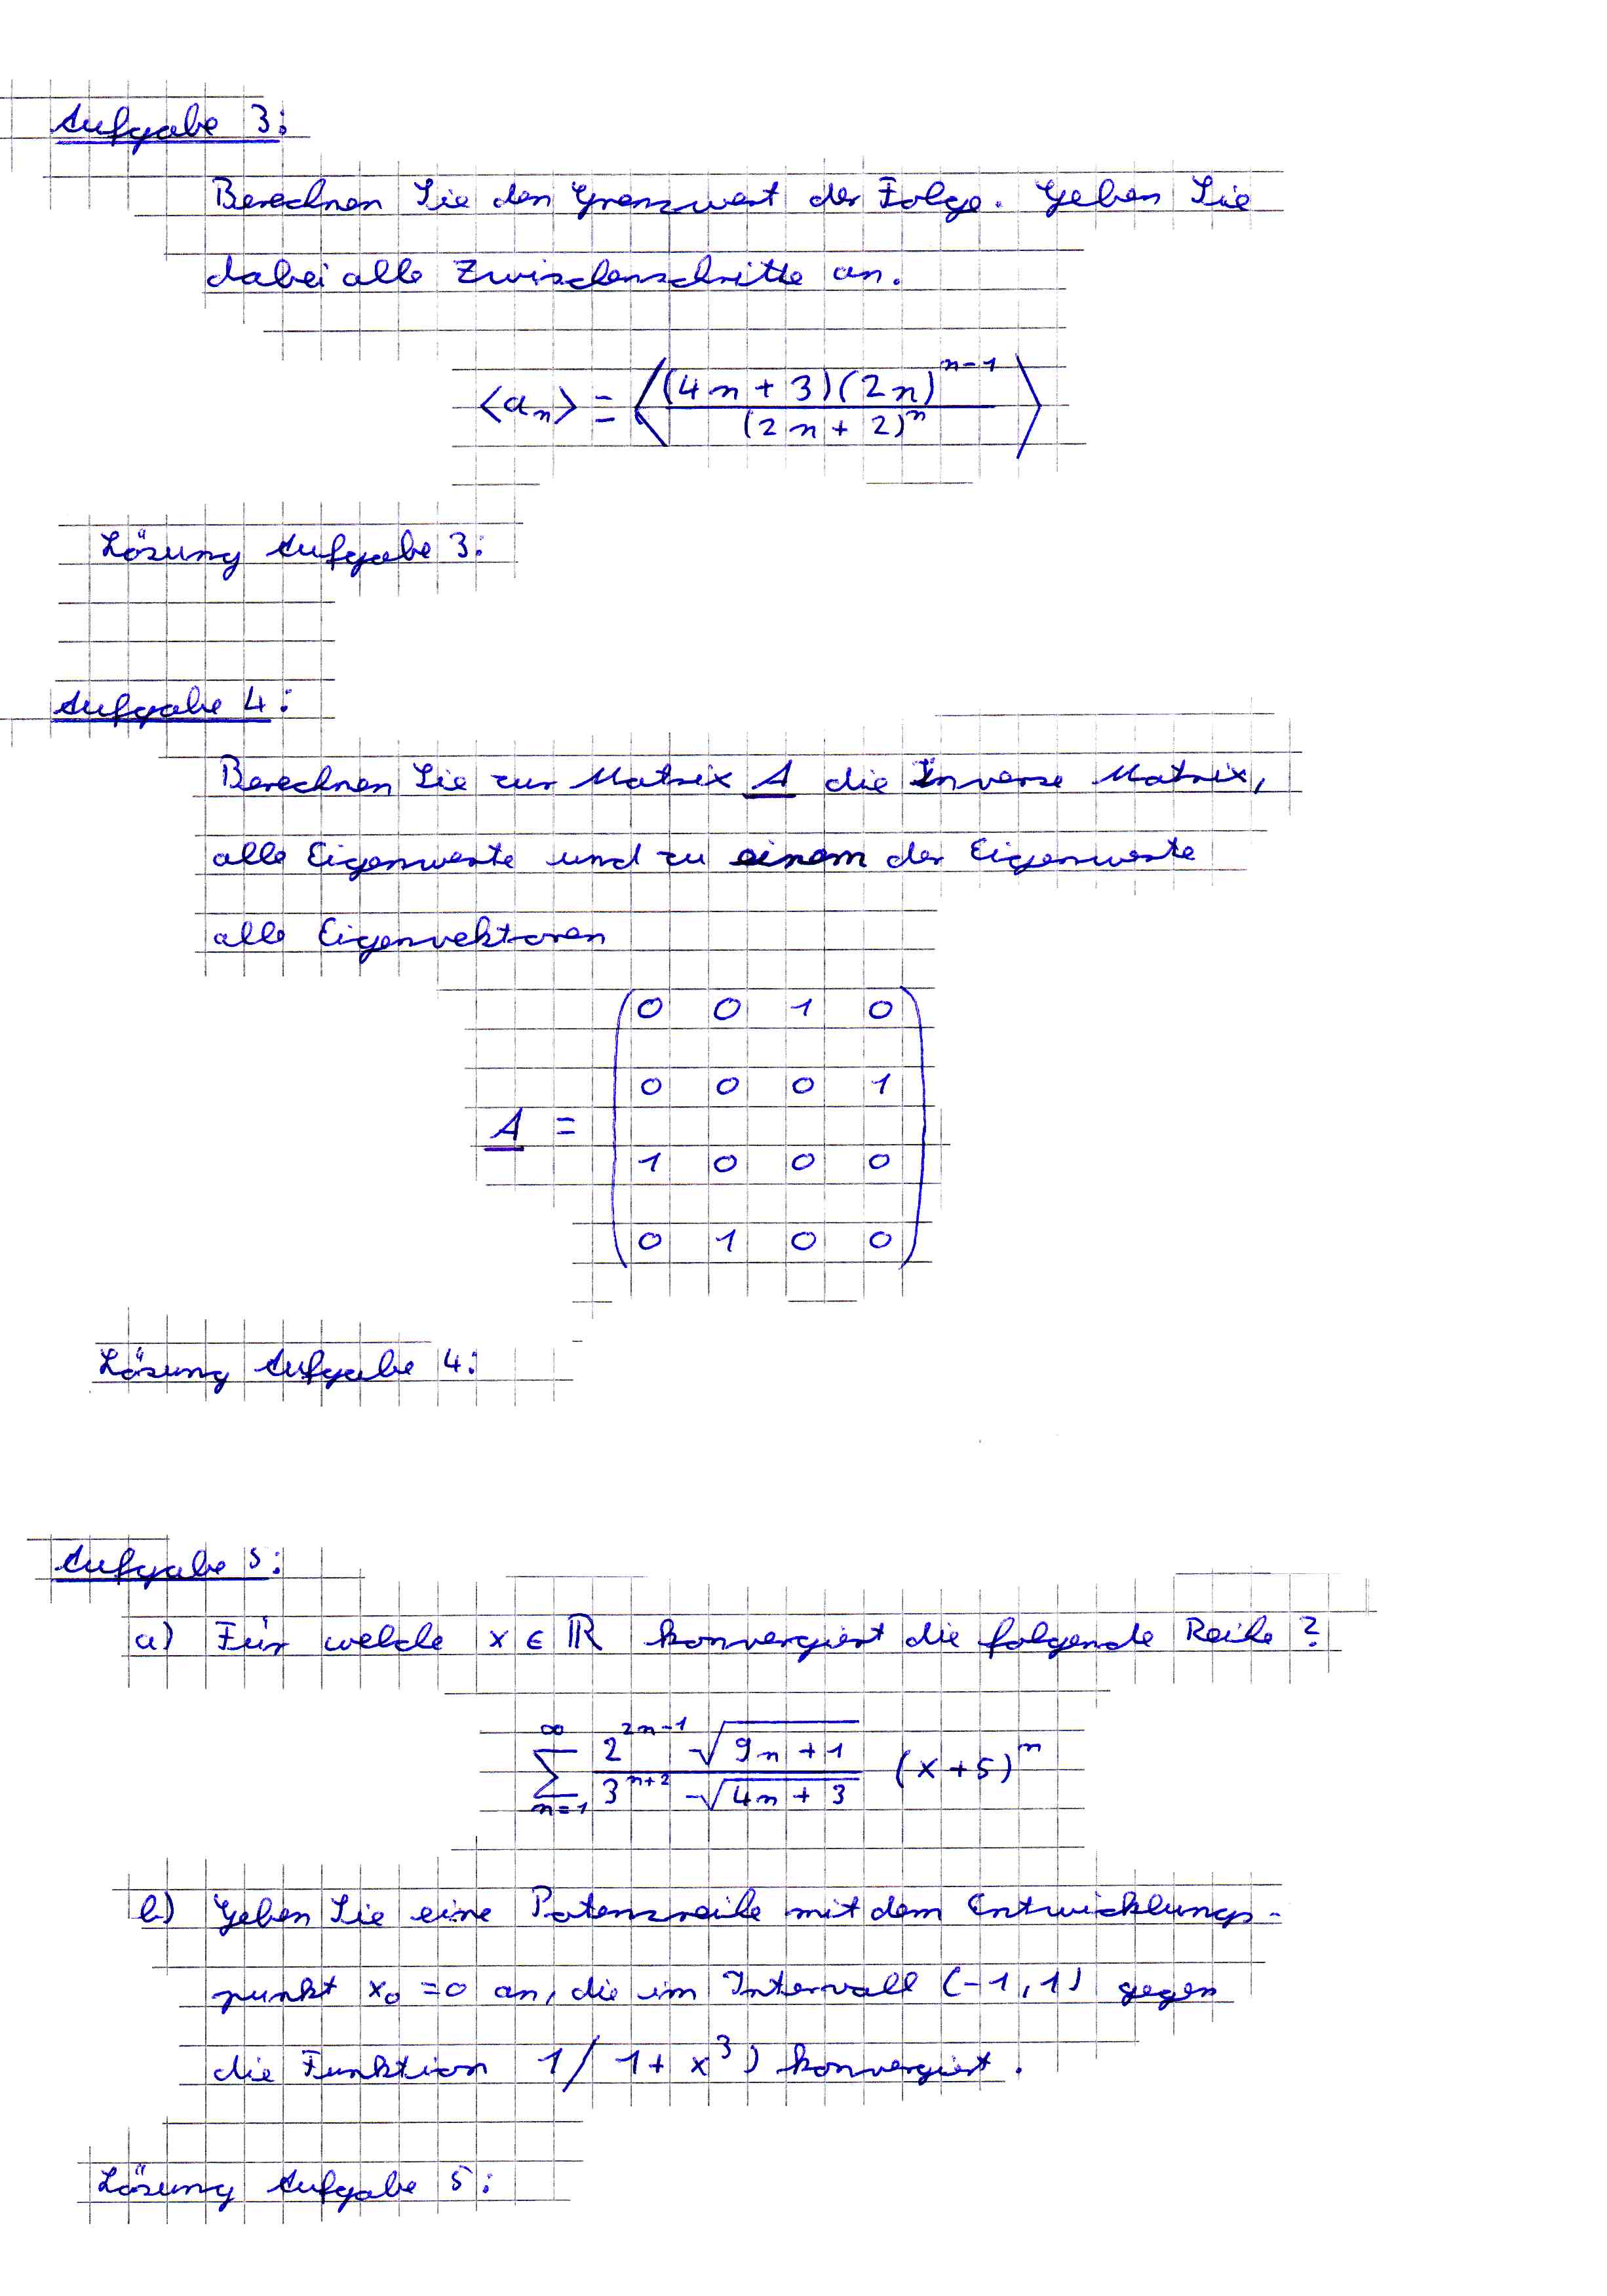 Aufgabe 3:
Berechnen Sie den Grenzwert der Folge. Geben Sie
dabei alle Zwischenschritte an.
<a_n> = <((4n+3)(2n)^{n-1})/((2n+2)^n)>
Lösung Aufgabe 3:
Aufgabe 4:
Berechnen Sie zur Matrix A die Inverse Matrix,
alle Eigenwerte und zu einem der Eigenwerte
alle Eigenvektoren
0 0 1 0
0 0 0 1
A =
1 0 0 0
0 1 0 0
Lösung Aufgabe 4:
Aufgabe 5:
a) Für welche x ∈ ℝ konvergiert die folgende Reihe?
∑_{n=1}^{∞} (2^{2n-1} √(9n+1))/(3^{n+2} √(4n+3)) (x+5)^n
b) Geben Sie eine Potenzreihe mit dem Entwicklungs-
punkt x₀ = 0 an, die im Intervall (-1, 1) gegen
die Funktion 1/ 1+ x³) konvergiert.
Lösung Aufgabe 5: